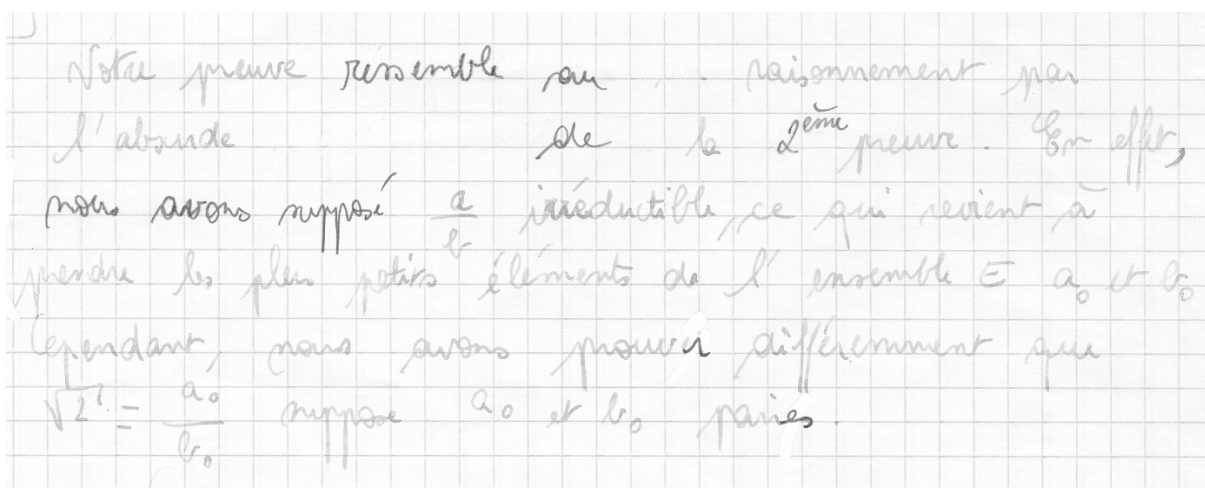 Notre preuve ressemble au raisonnement par
l'absurde de la 2ème preuve. En effet,
nous avons supposé a/b irréductible, ce qui revient à
prendre les plus petits éléments de l'ensemble E a₀ et b₀
Cependant, nous avons prouver différemment que
√2 = a₀/b₀ suppose a₀ et b₀ paires.